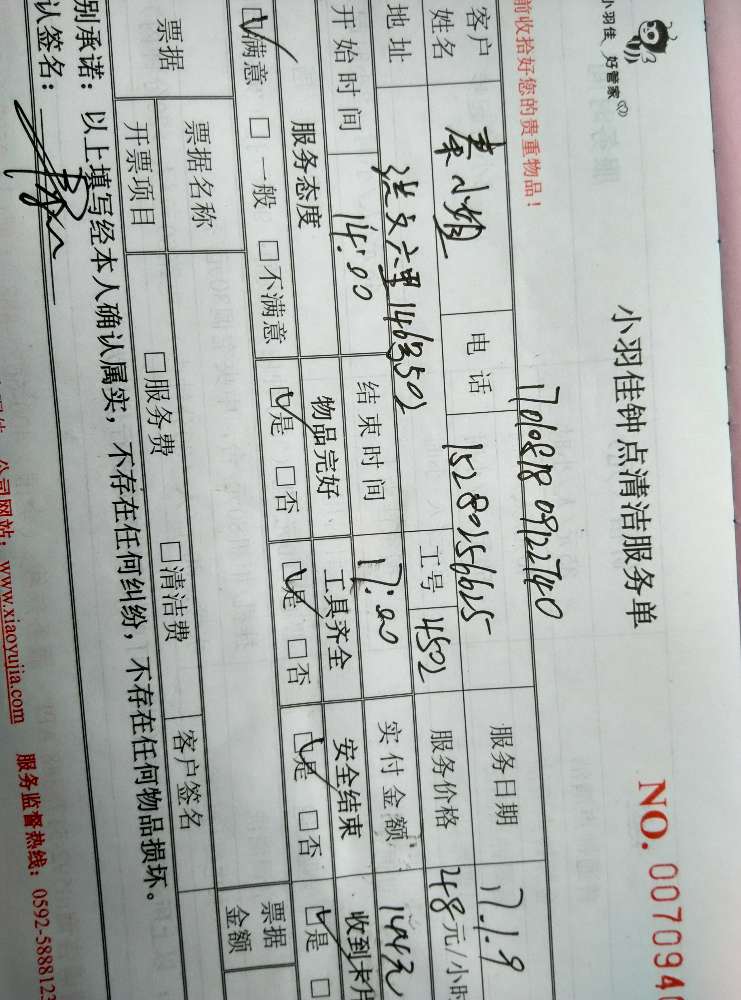 小羽佳 好管家
小羽佳钟点清洁服务单
NO. 007094
前收拾好您的贵重物品！
客户姓名 秦小姐 电话 15280256615 服务日期 17.1.9
地址 洪文六里146号502 工号 4502 服务价格 48元/小时
开始时间 14:00 结束时间 17:00 实付金额 144元
服务态度 物品完好 工具齐全 安全结束 收到卡片
☑满意 □一般 □不满意 ☑是 □否 ☑是 □否 ☑是 □否 ☑是 □
票据 票据名称 □服务费 □清洁费 客户签名 票据金额
开票项目
别承诺：以上填写经本人确认属实，不存在任何纠纷，不存在任何物品损坏。
认签名：
公司网站：www.xiaoyujia.com 服务监督热线：0592-5888123